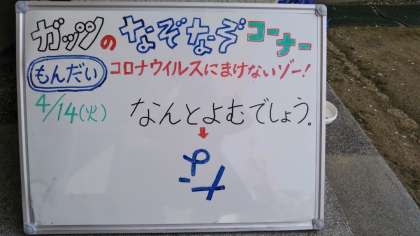 ガッツの なぞなぞ コーナー
もんだい コロナウイルスにまけないゾー!
4/14(火) なんとよむでしょう。